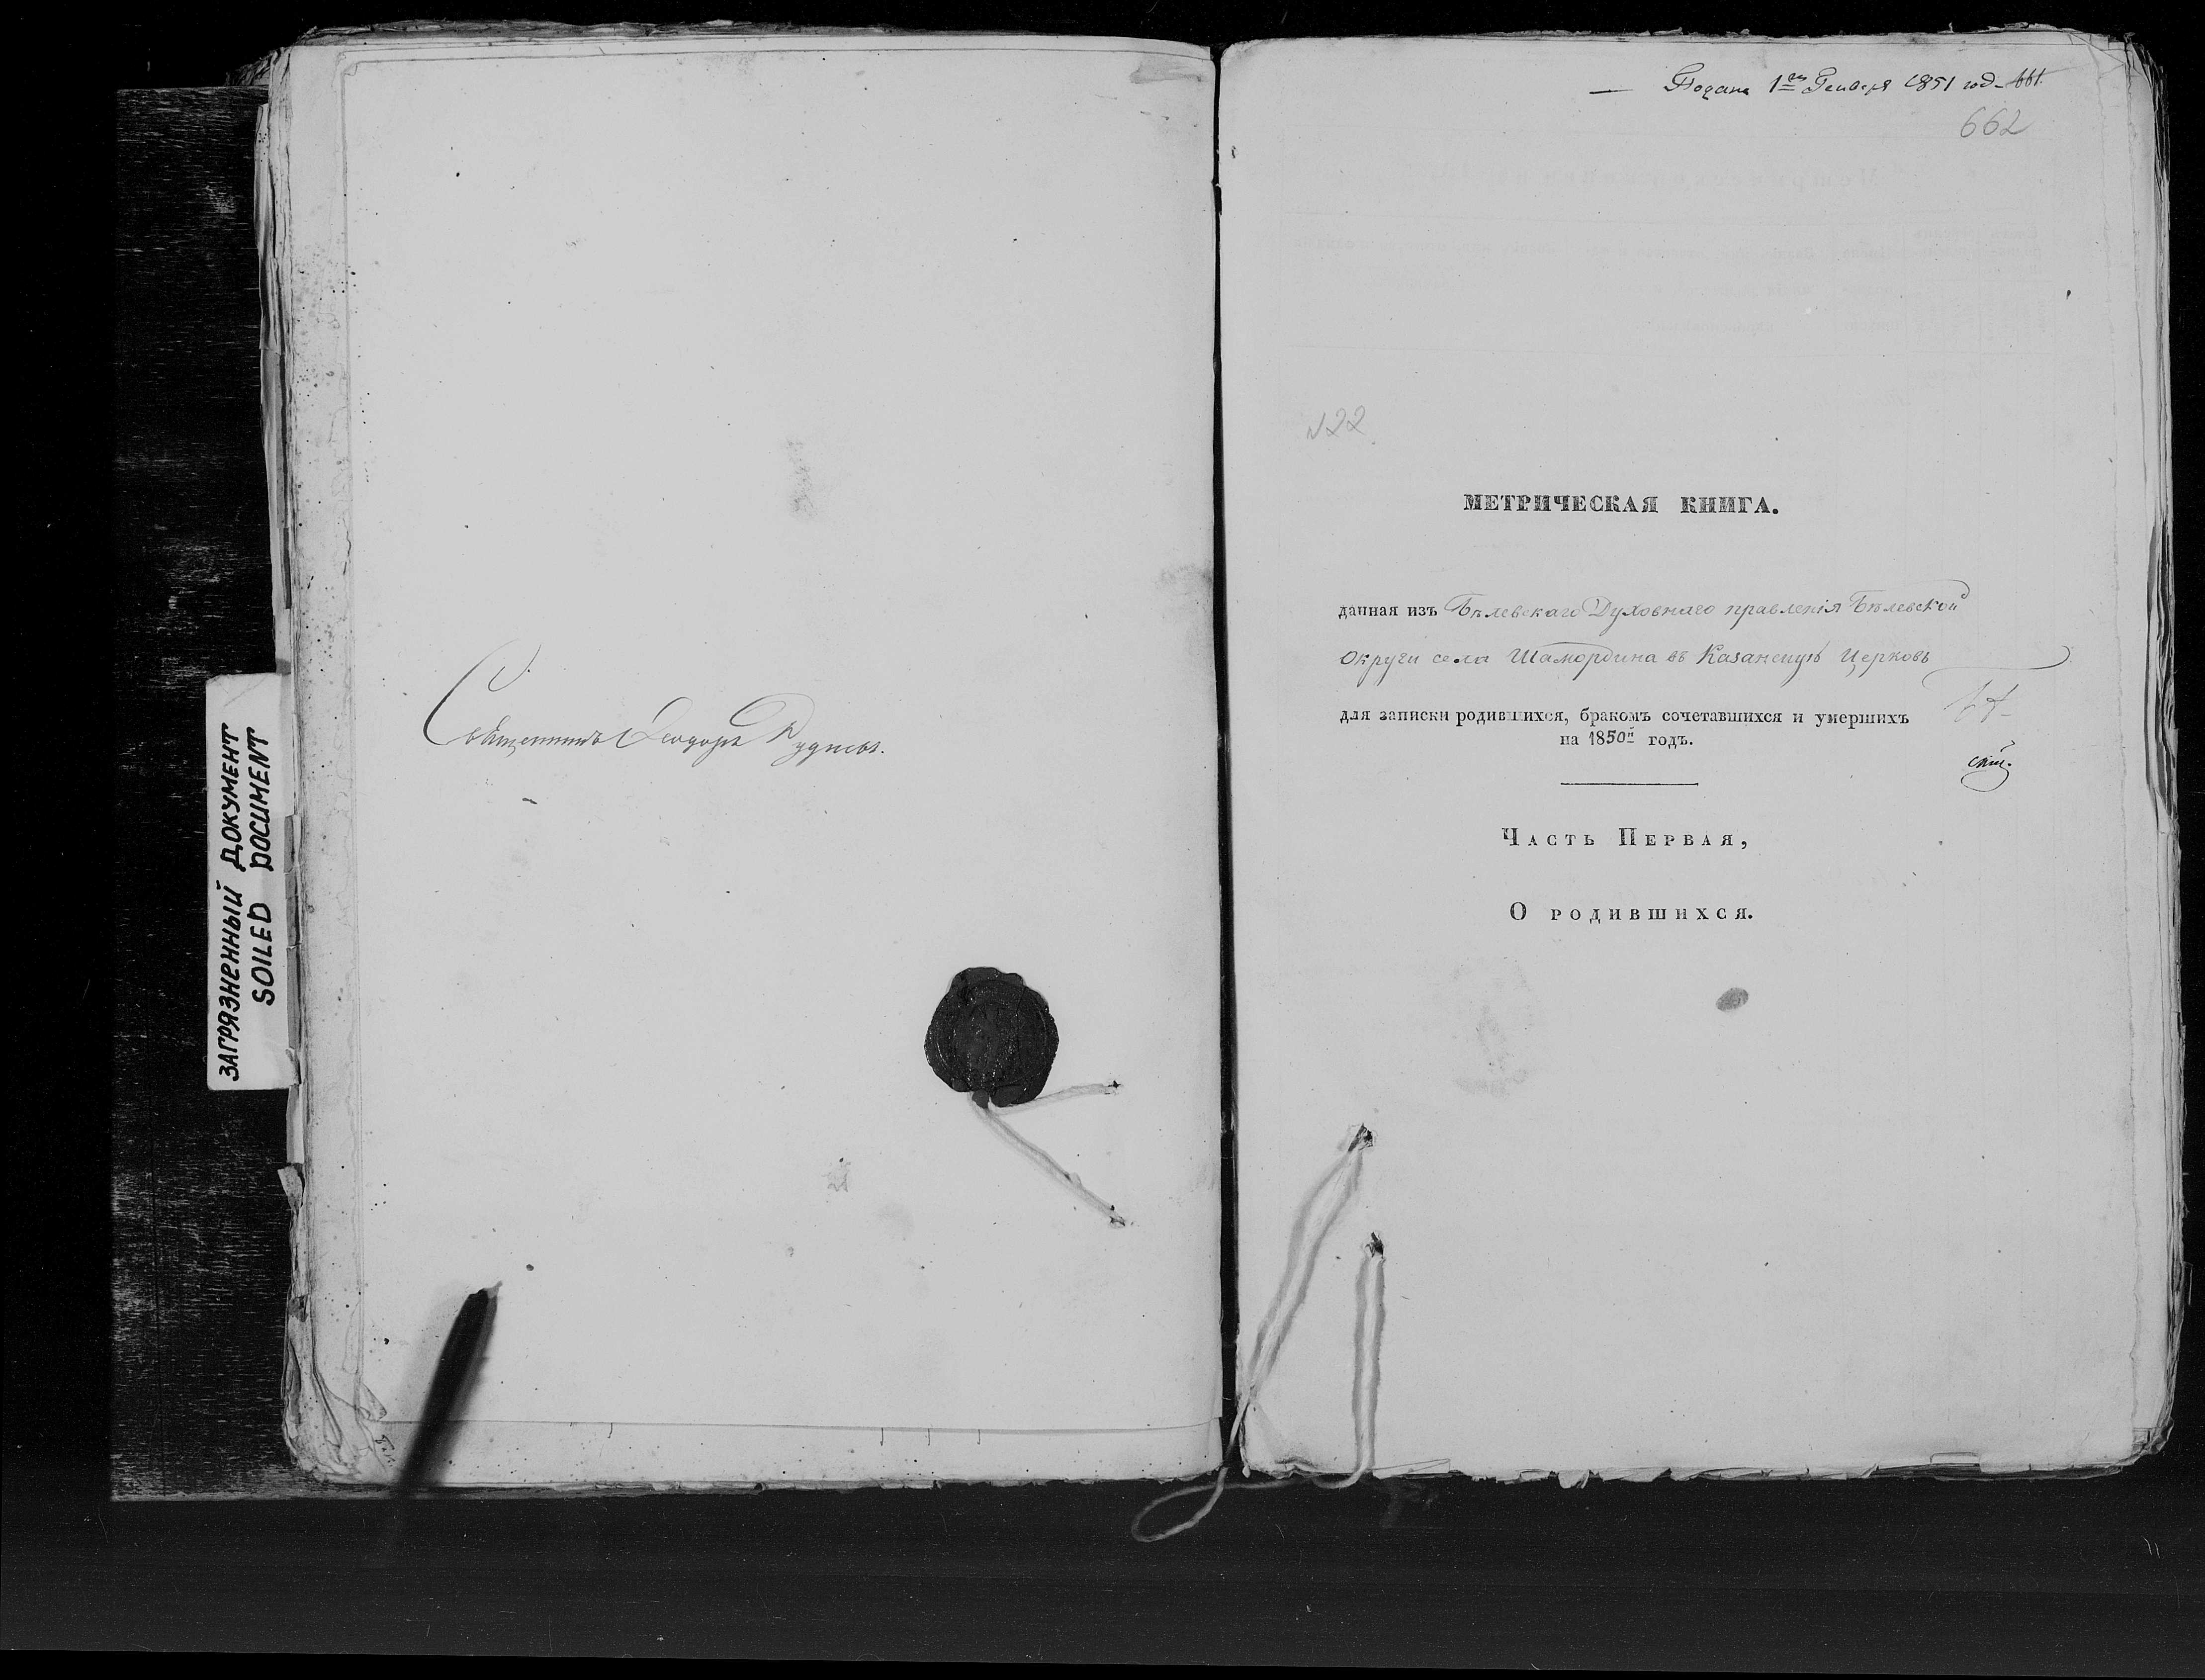 ЗАГРЯЗНЕННЫЙ ДОКУМЕНТ
SOILED DOCUMENT
Священникъ Ѳеодоръ Рудневъ.
Подана 1го Генваря 1851 год
661
662
№22
МЕТРИЧЕСКАЯ КНИГА.
данная изъ Бѣлевскаго Духовнаго правленія Бѣлевской
Округи села Шамордина въ Казанскую Церковь
для записки родившихся, бракомъ сочетавшихся и умершихъ
на 1850й годъ.
ЧАСТЬ ПЕРВАЯ,
О РОДИВШИХСЯ.